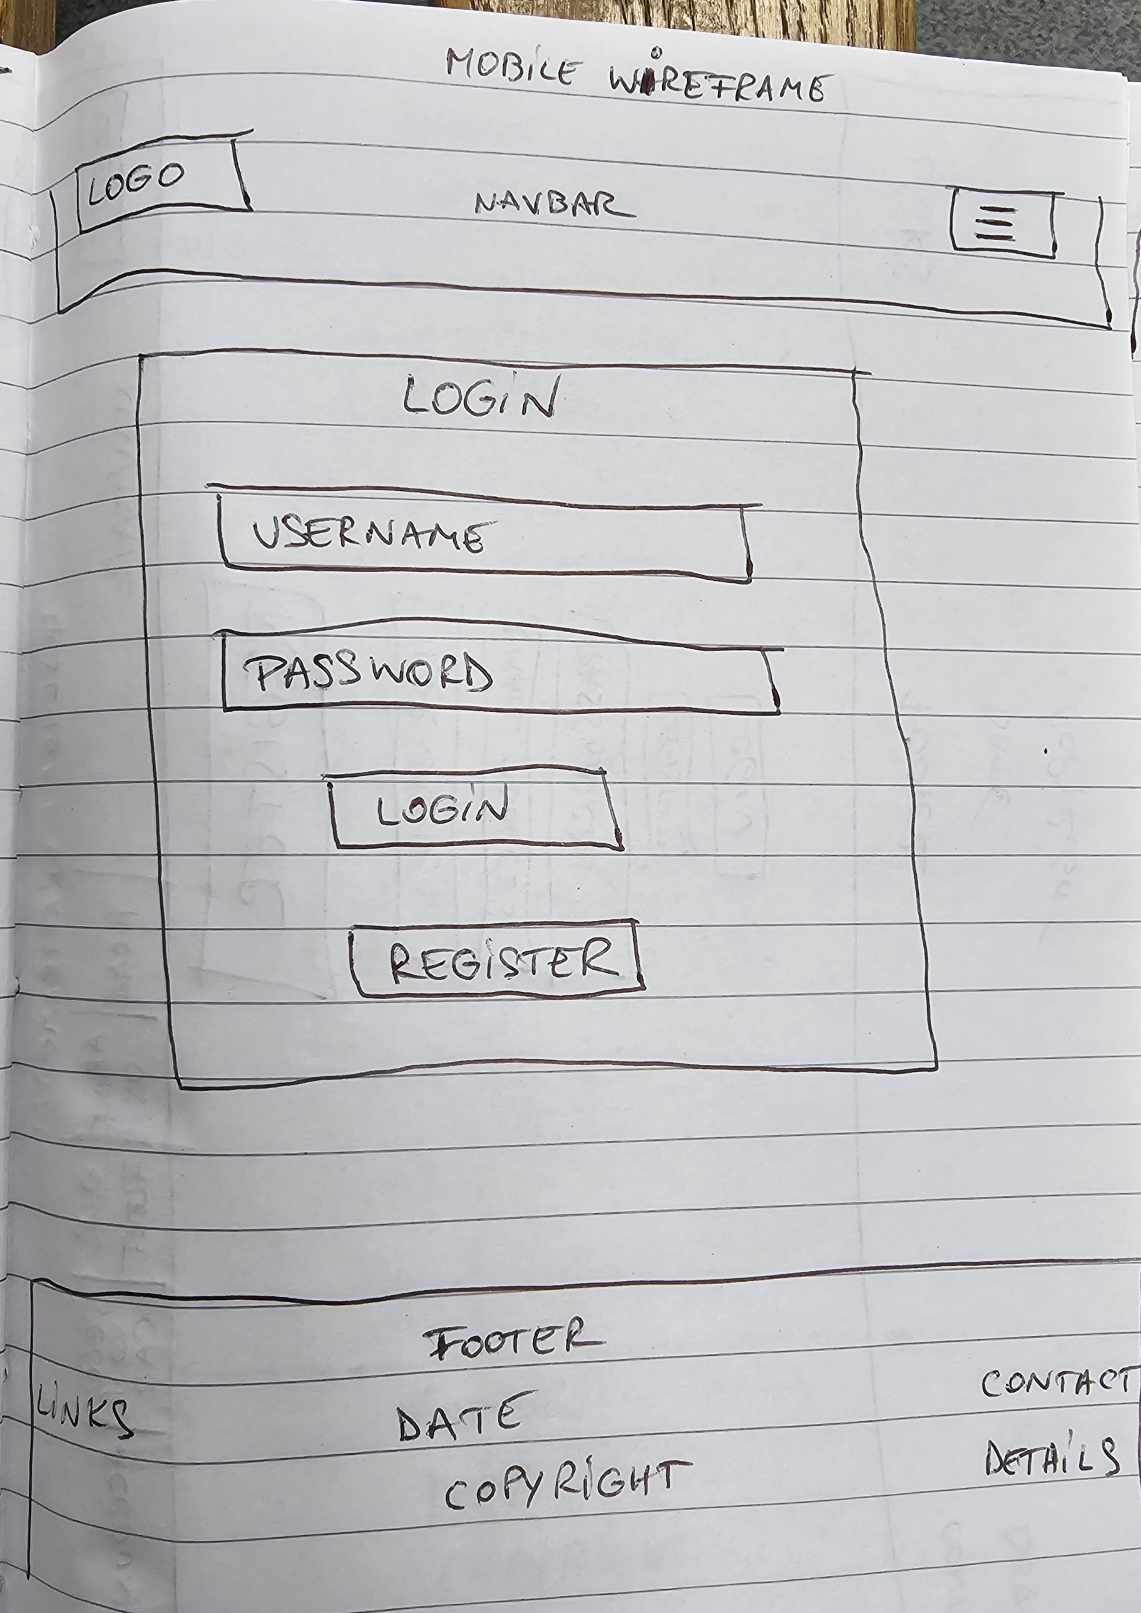 MOBILE WIREFRAME
LOGO
NAVBAR
LOGIN
USERNAME
PASSWORD
LOGIN
REGISTER
FOOTER
LINKS
DATE
COPYRIGHT
CONTACT
DETAILS